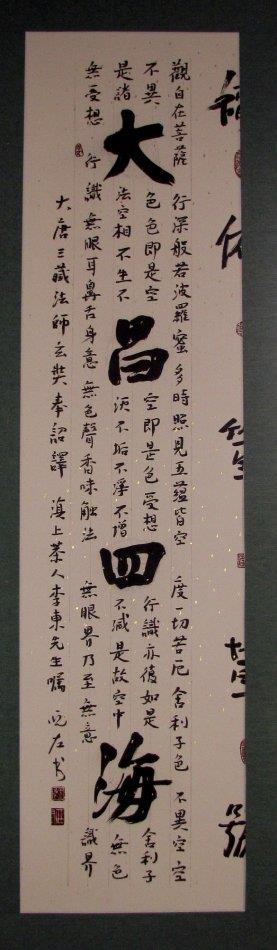 觀自在菩薩 行深般若波羅蜜多時照見五蘊皆空 度一切苦厄 舍利子色 不異空空
不異 色色即是空 空即是色受想 行識亦復如是 舍利子
大昌四海
是諸 法空相不生不 滅不垢不淨不增 不減是故空中 無色
無受想 行識無眼耳鼻舌身意 無色聲香味觸法 無眼界乃至無意 識界
大唐三藏法師玄奘奉詔譯 滇上茶人李東先生囑 左書